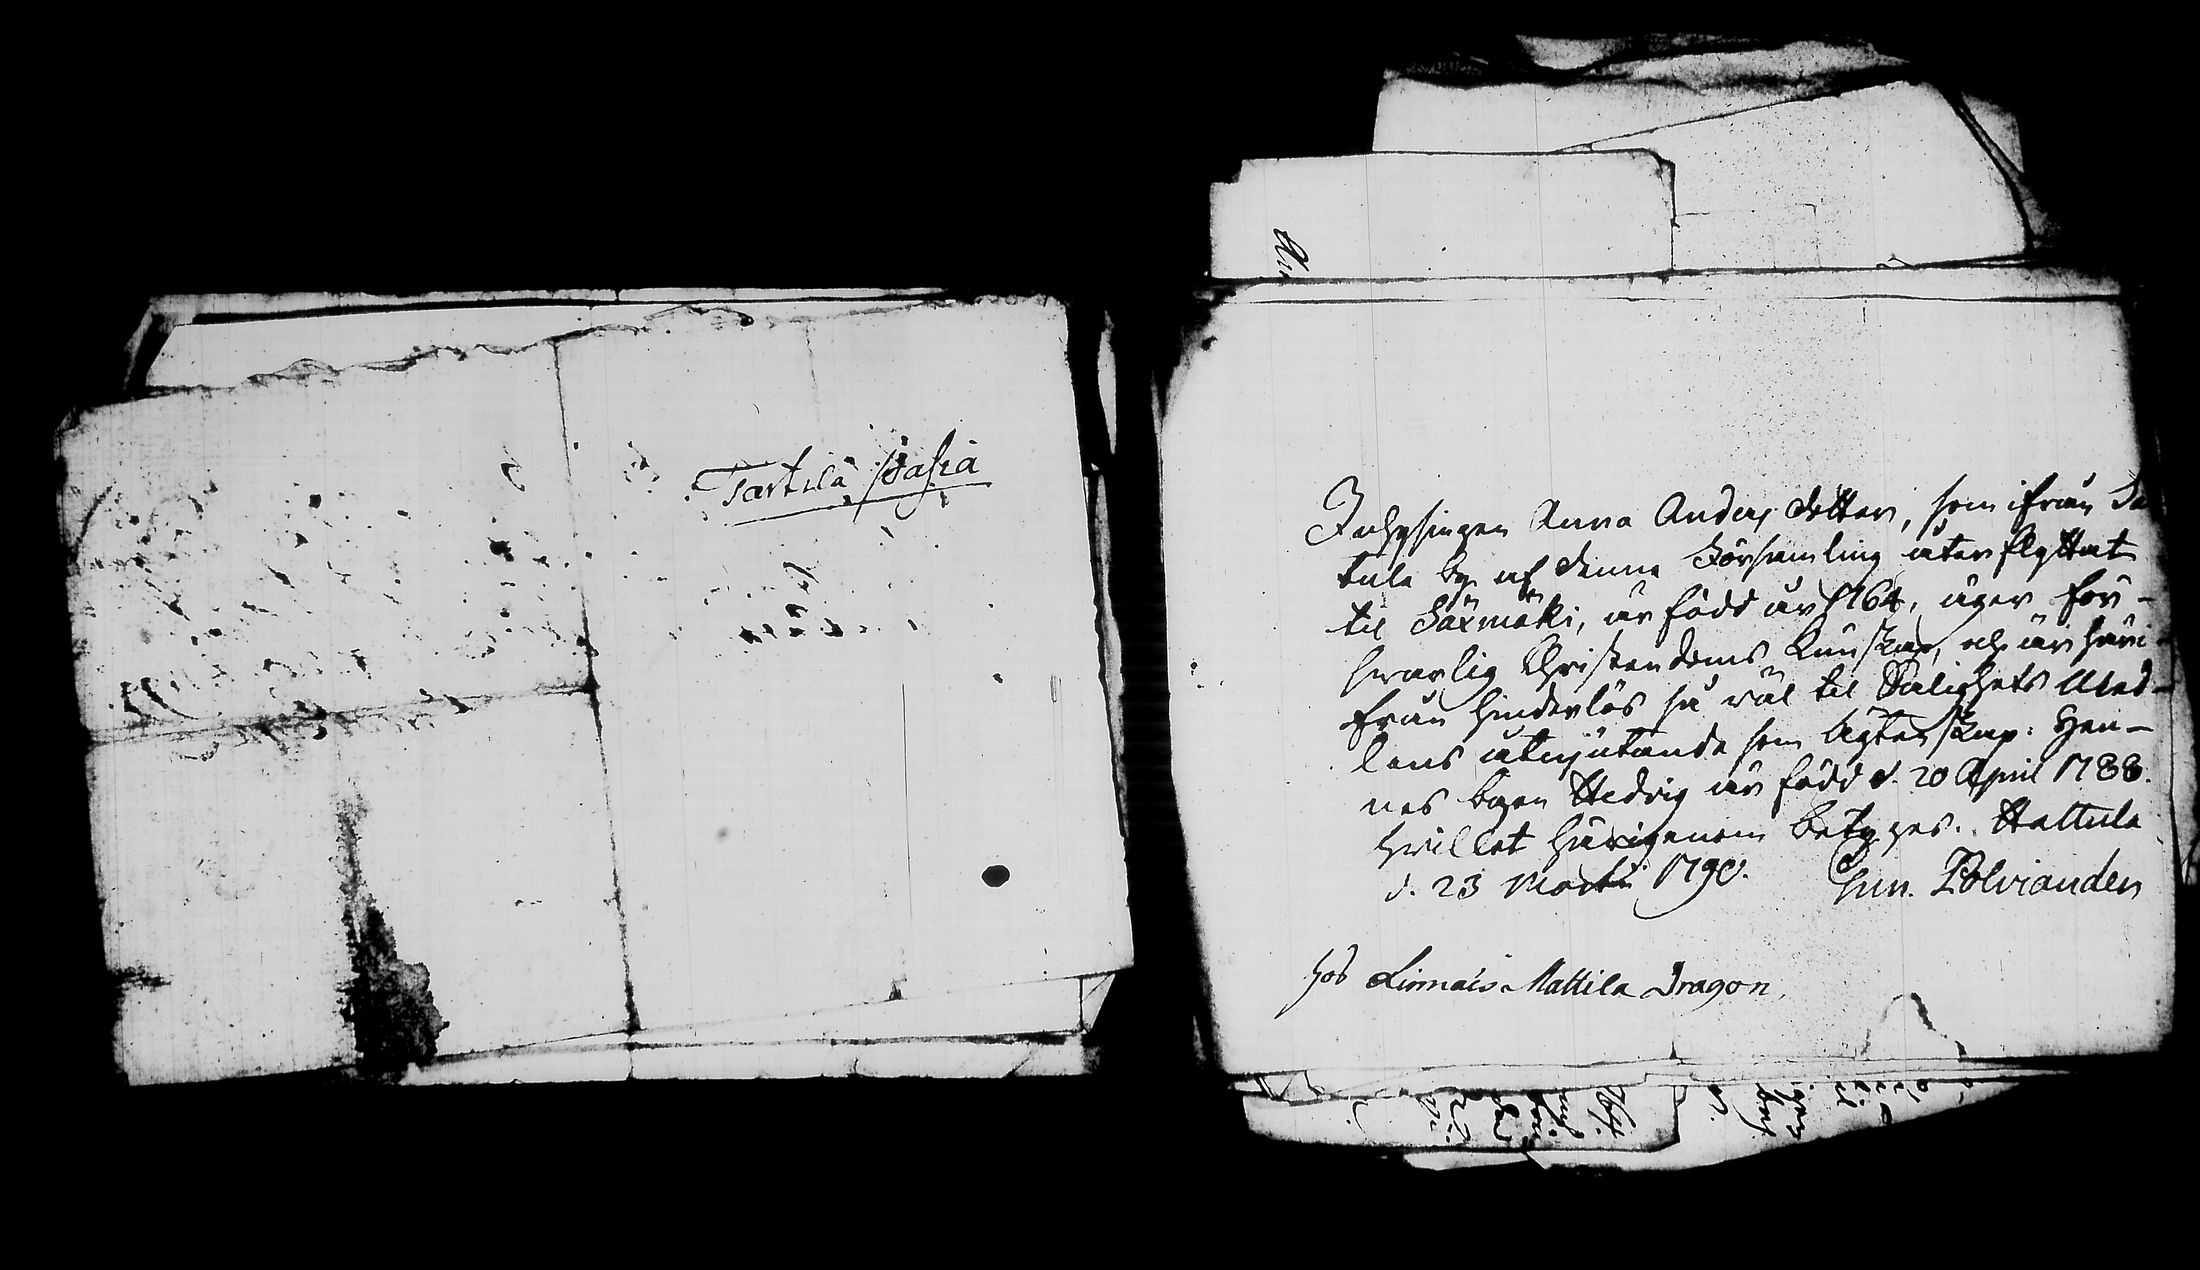 Tartila sofia
Inhysingen Anna Anders dotter, som ifrån
tula by af denna Församling återflyttat
til Säxmäki, är född år 1764, äger för-
svarlig Christendoms Kunskap, och är häri-
från hinderlös så väl til Salighets Med-
lens åtnjutande som ägtenskap: Hen-
nes Hedvig är född d. 20 April 1788.
hvilket härigenom betyges. Hattula
d. 23 Martii 1790. Polviander
hos Mattila Dragon.